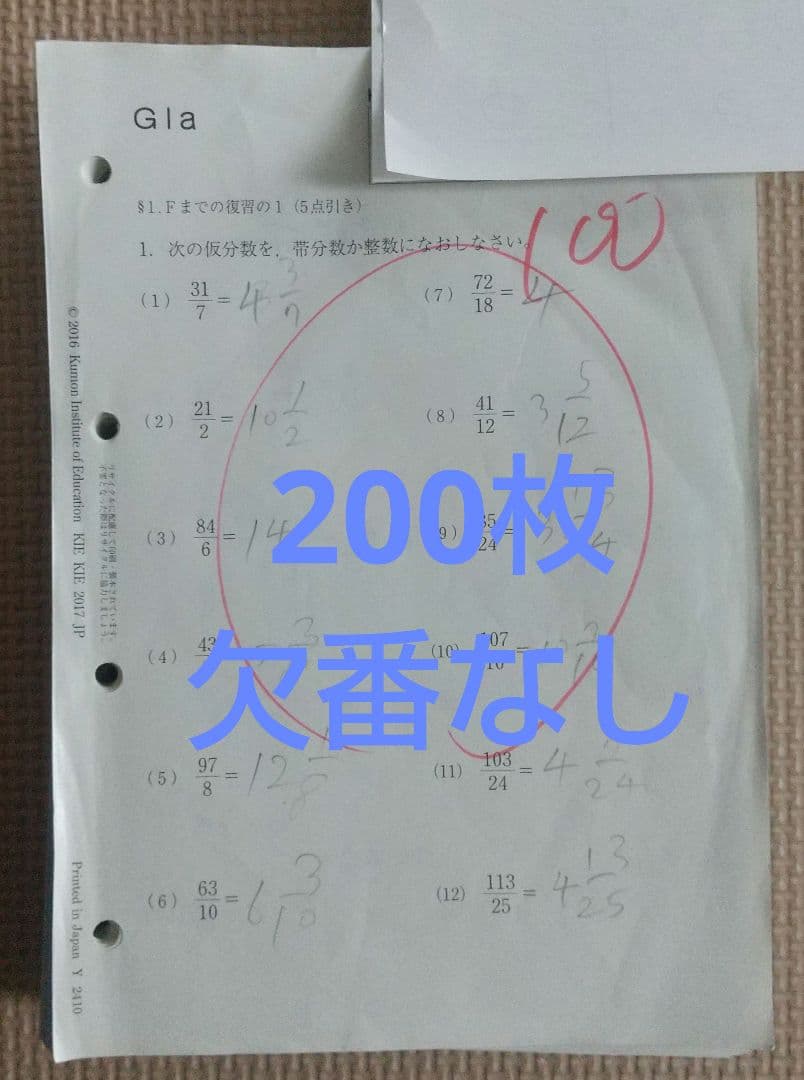 G1a
§1. Fまでの復習の1（5点引き）
100
1. 次の仮分数を, 帯分数か整数になおしなさい。
(1) 31/7 = 4 3/7
(2) 21/2 = 10 1/2
(3) 84/6 = 14
(4) 43
(5) 97/8 = 12 1/8
(6) 63/10 = 6 3/10
(7) 72/18 = 4
(8) 41/12 = 3 5/12
24 =
(10) 107
(11) 103/24 = 4
(12) 113/25 = 4 13/25
200枚
欠番なし
© 2016 Kumon Institute of Education KIE KIE 2017 JP
Printed in Japan Y 2410